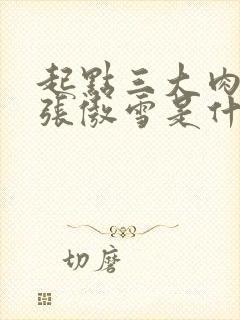 起點三大肉
張傲雪是什
切磨